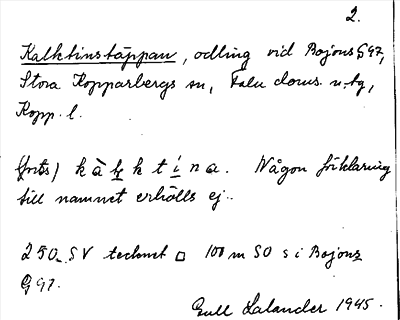 2.
Kalktinstäppan, odling vid Bojons G 97,
Stora Kopparbergs sn, Falu doms. n. tg,
Kopp. l.
k à l k t i n a. Någon förklaring
till namnet erhölls ej.
250 SV tecknet □ 100 m SO s i Bojons
G 97.
Gull Lalander 1945.